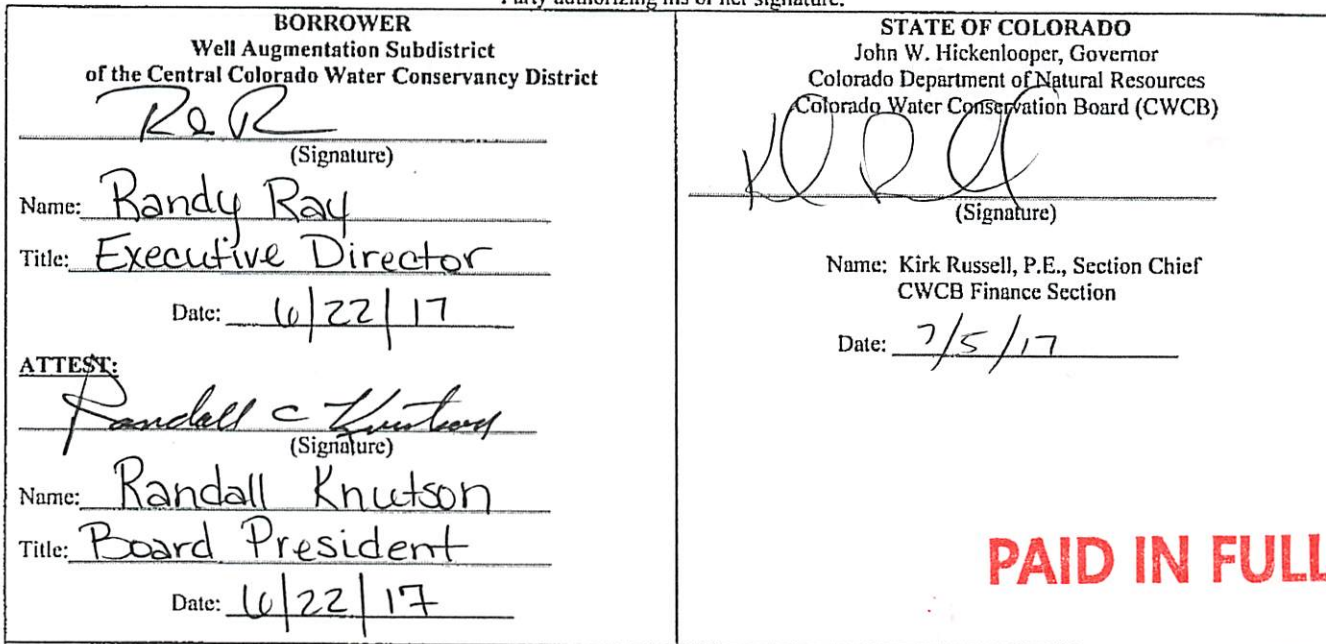 Party authorizing his or her signature.
BORROWER
Well Augmentation Subdistrict
of the Central Colorado Water Conservancy District
(Signature)
Name: Randy Ray
Title: Executive Director
Date: 6/22/17
ATTEST:
Randall C Knutson
(Signature)
Name: Randall Knutson
Title: Board President
Date: 6/22/17
STATE OF COLORADO
John W. Hickenlooper, Governor
Colorado Department of Natural Resources
Colorado Water Conservation Board (CWCB)
(Signature)
Name: Kirk Russell, P.E., Section Chief
CWCB Finance Section
Date: 7/5/17
PAID IN FULL